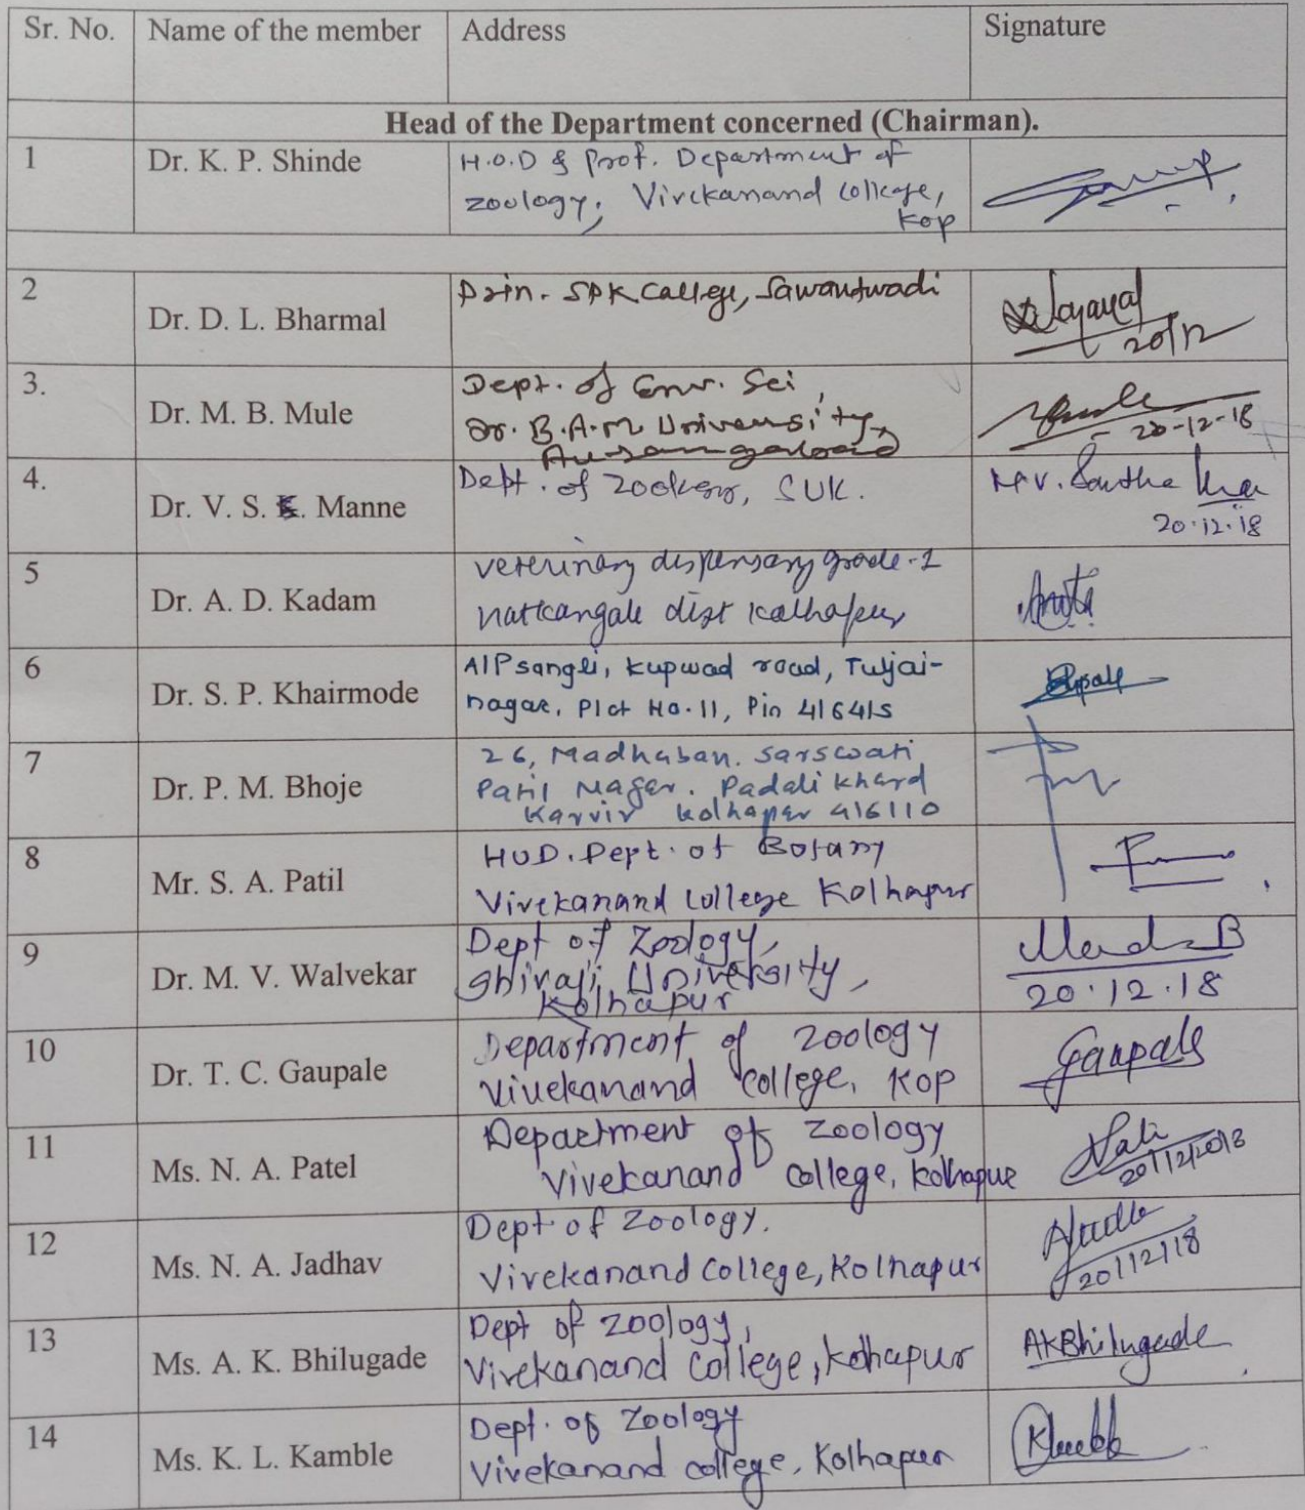 Sr. No. Name of the member Address Signature
Head of the Department concerned (Chairman).
1 Dr. K. P. Shinde H.O.D & Prof. Department of
zoology, Vivekanand college,
Kop
2 Dr. D. L. Bharmal Prin. SPK College, Sawantwadi
20/12
3. Dr. M. B. Mule Dept. of Env. Sci,
Dr. B.A.M University,
Aurangabad
20-12-18
4. Dr. V. S. K. Manne Dept. of Zoology, SUK.
20.12.18
5 Dr. A. D. Kadam veterinary dispensary grade-1
hatkangale dist kolhapur
6 Dr. S. P. Khairmode A/P sangli, kupwad road, Tuljai-
nagar, Plot No. 11, Pin 416415
7 Dr. P. M. Bhoje 26, Madhuban. Sarswati
Patil Nager. Padali Khard
Karvir kolhapur 416110
8 Mr. S. A. Patil HOD. Dept. of Botany
Vivekanand College Kolhapur
9 Dr. M. V. Walvekar Dept of Zoology,
Shivaji University,
Kolhapur
20.12.18
10 Dr. T. C. Gaupale Department of zoology
Vivekanand college, Kop
Gaupale
11 Ms. N. A. Patel Department of Zoology
Vivekanand college, Kolhapur
20/12/2018
12 Ms. N. A. Jadhav Dept of Zoology.
Vivekanand College, Kolhapur
20/12/18
13 Ms. A. K. Bhilugade Dept of zoology,
Vivekanand College, Kolhapur
AKBhilugade
14 Ms. K. L. Kamble Dept. of Zoology
Vivekanand college, Kolhapur